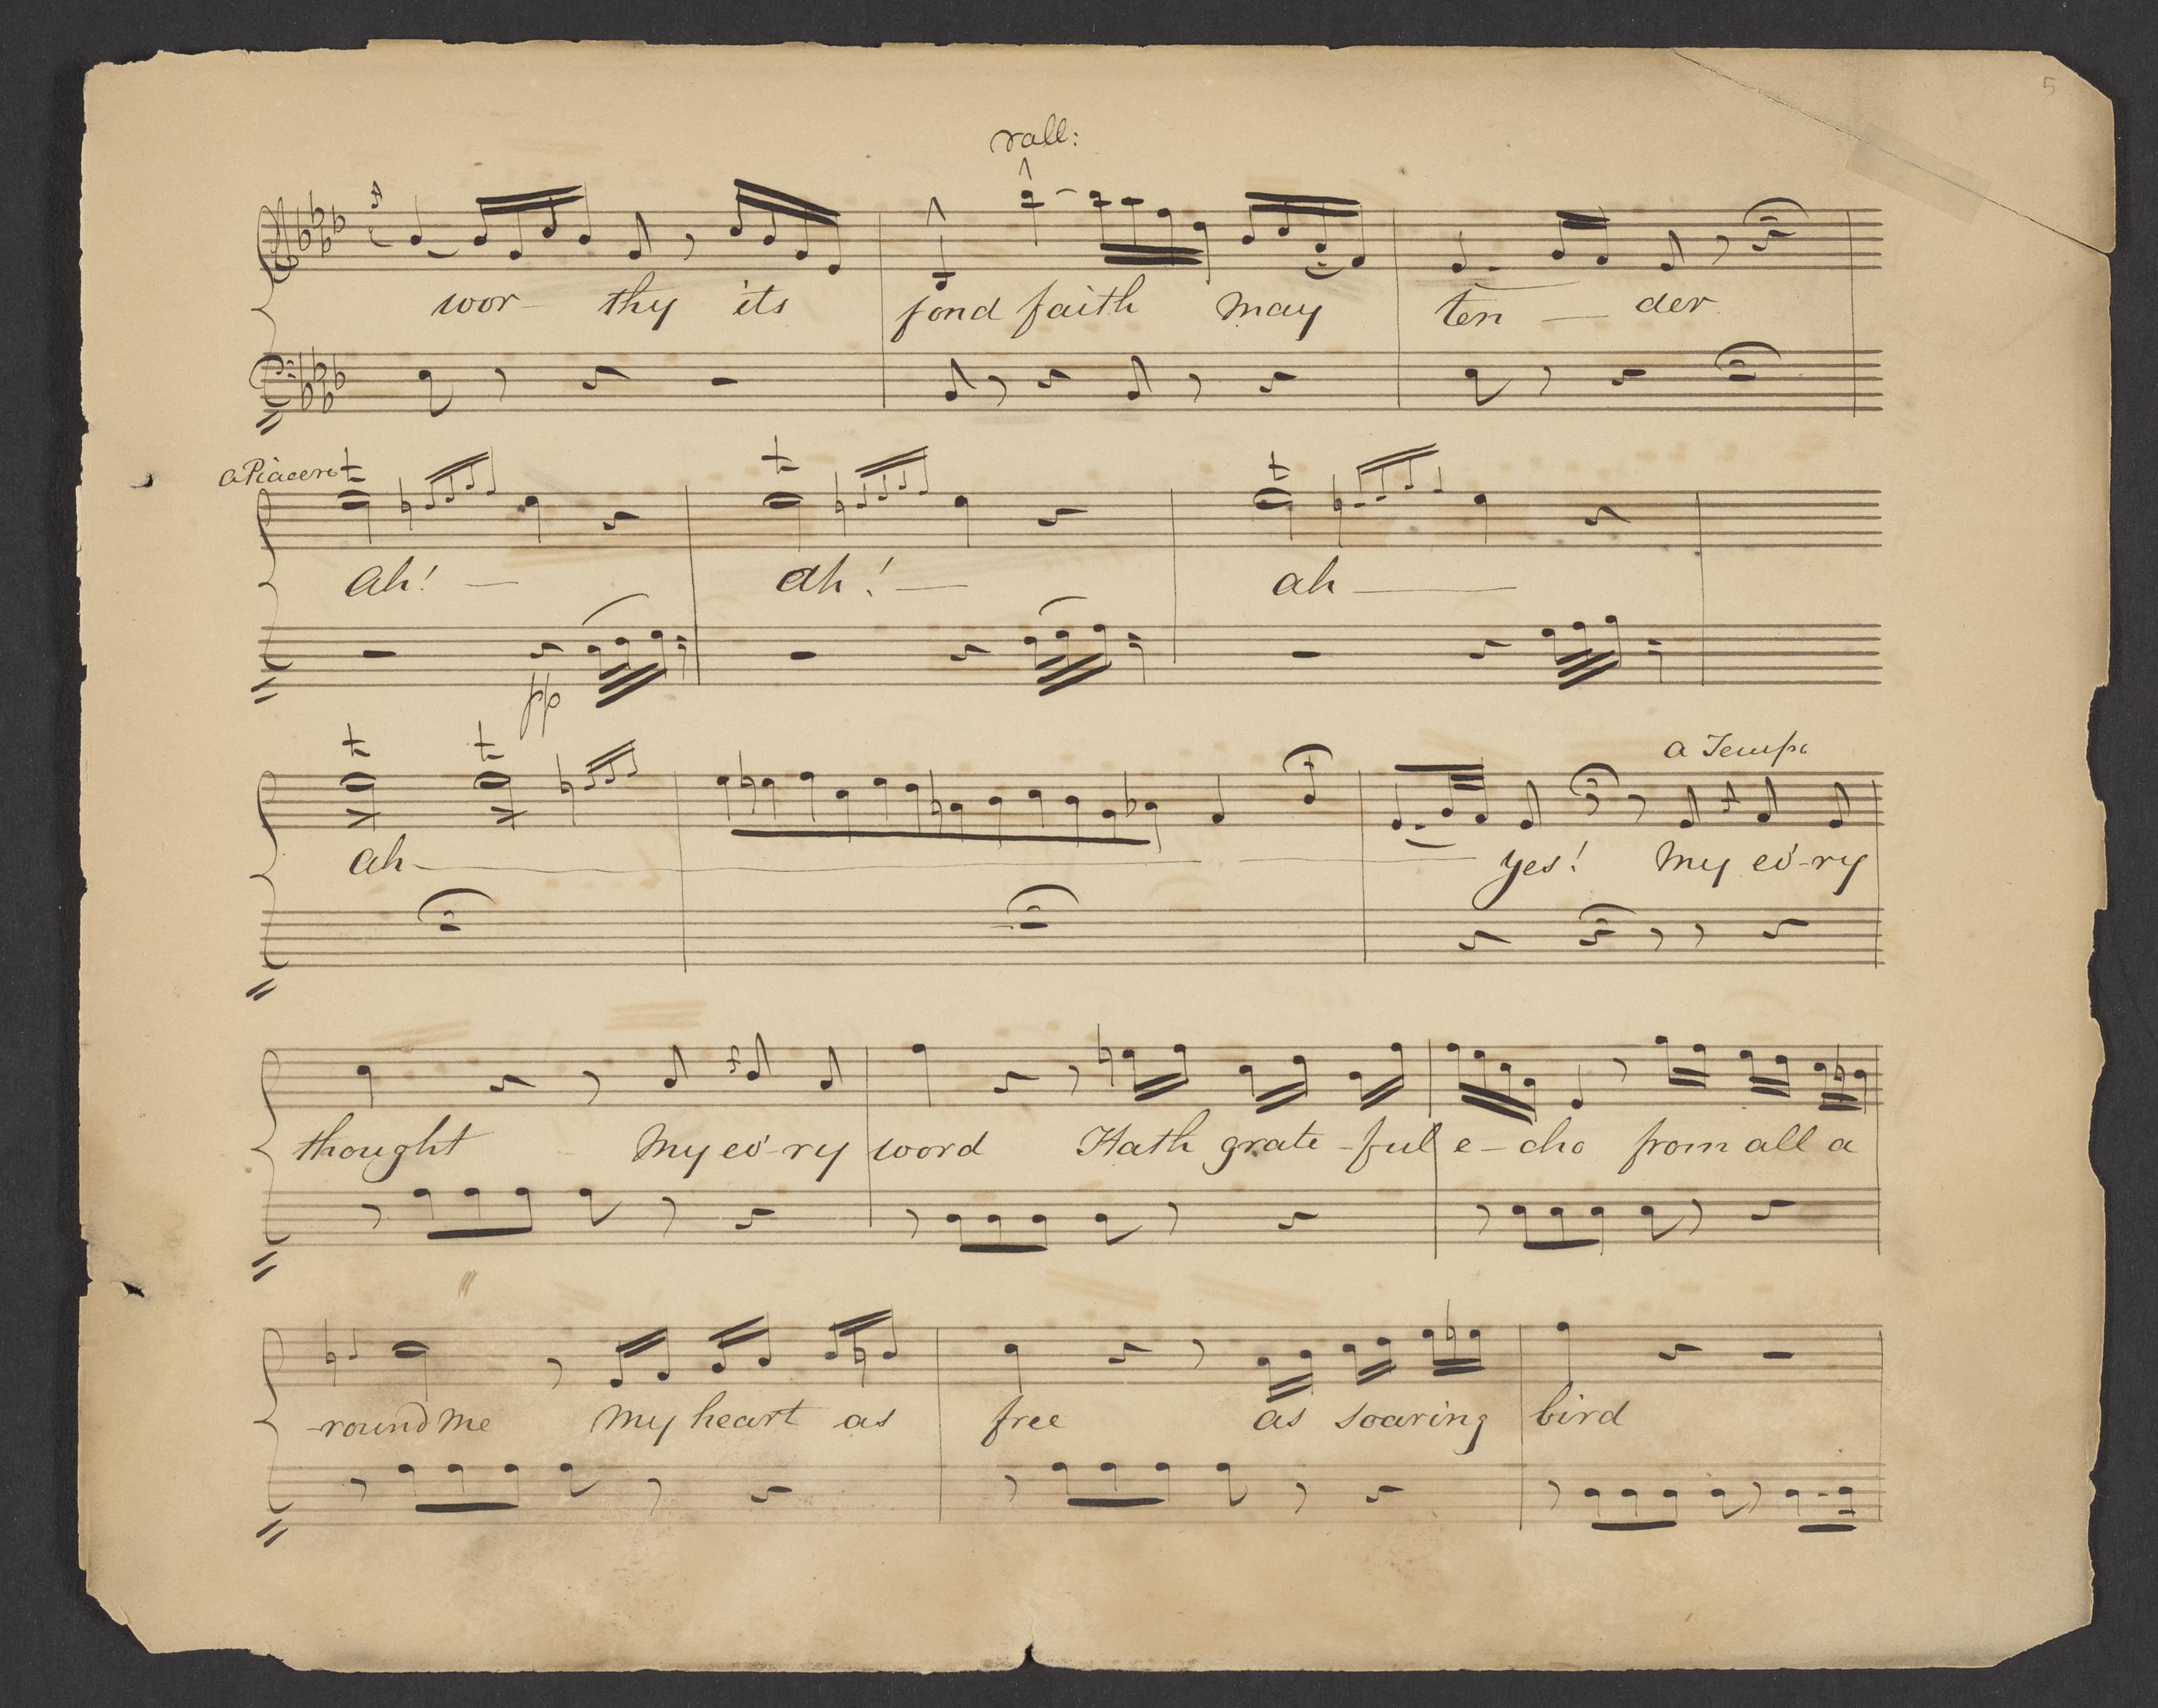 5
rall:
wor- thy its fond faith may ten — der
a Piacere
Ah! — ah! — ah —
pp
a Tempo
ah — yes! My ev'-ry
thought My ev'-ry word Hath grate-ful e-cho from all a
-round me my heart as free as soaring bird